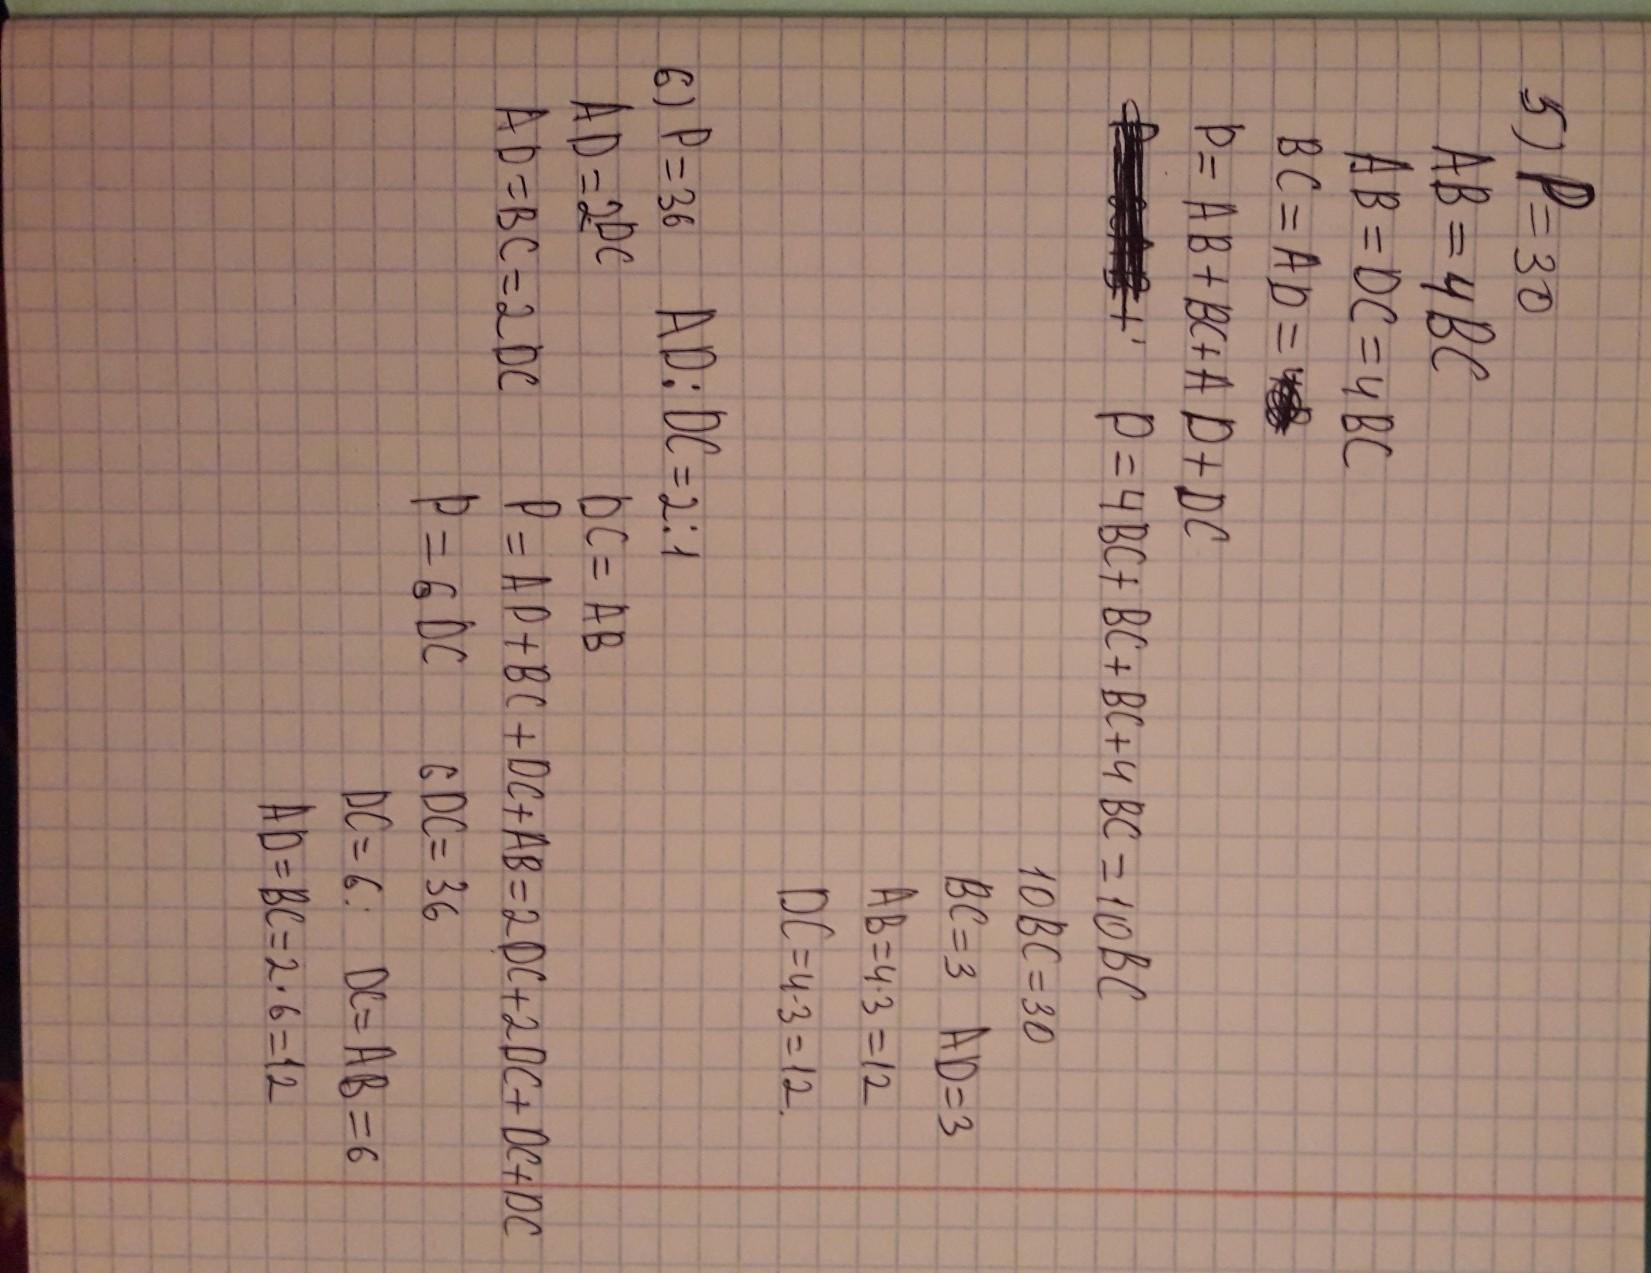 5) P=30
AB=4BC
AB=DC=4BC
BC=AD=
P=AB+BC+AD+DC
+ P=4BC+BC+BC+4BC=10BC
10BC=30
BC=3 AD=3
AB=4·3=12
DC=4·3=12.
6) P=36 AD:DC=2:1
AD=2DC DC=AB
AD=BC=2DC P=AD+BC+DC+AB=2DC+2DC+DC+DC
P=6DC 6DC=36
DC=6. DC=AB=6
AD=BC=2·6=12